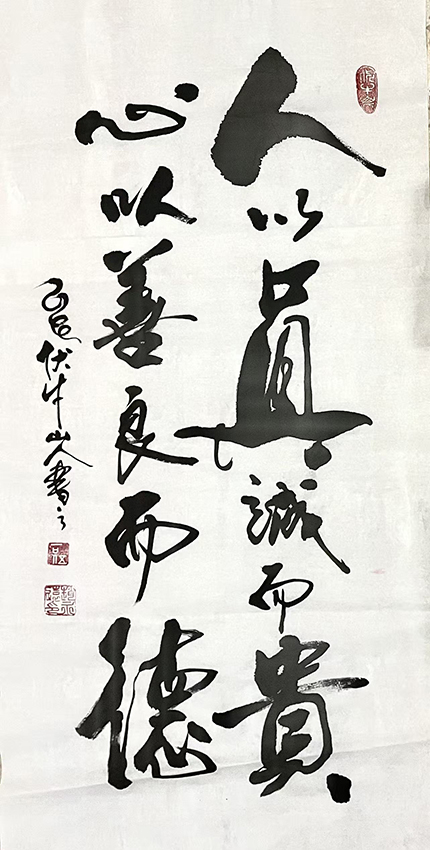 人以真誠而貴
心以善良而德
伏牛山人書之